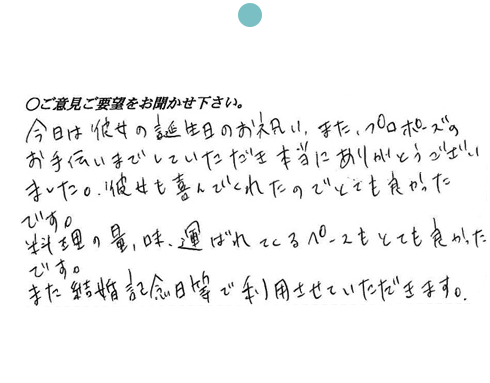 〇ご意見ご要望をお聞かせ下さい。
今日は彼女の誕生日のお祝い、また、プロポーズの
お手伝いまでしていただき本当にありがとうござい
ました。彼女も喜んでくれたのでとても良かった
です。
料理の量、味、運ばれてくるペースもとても良かった
です。
また結婚記念日等で利用させていただきます。